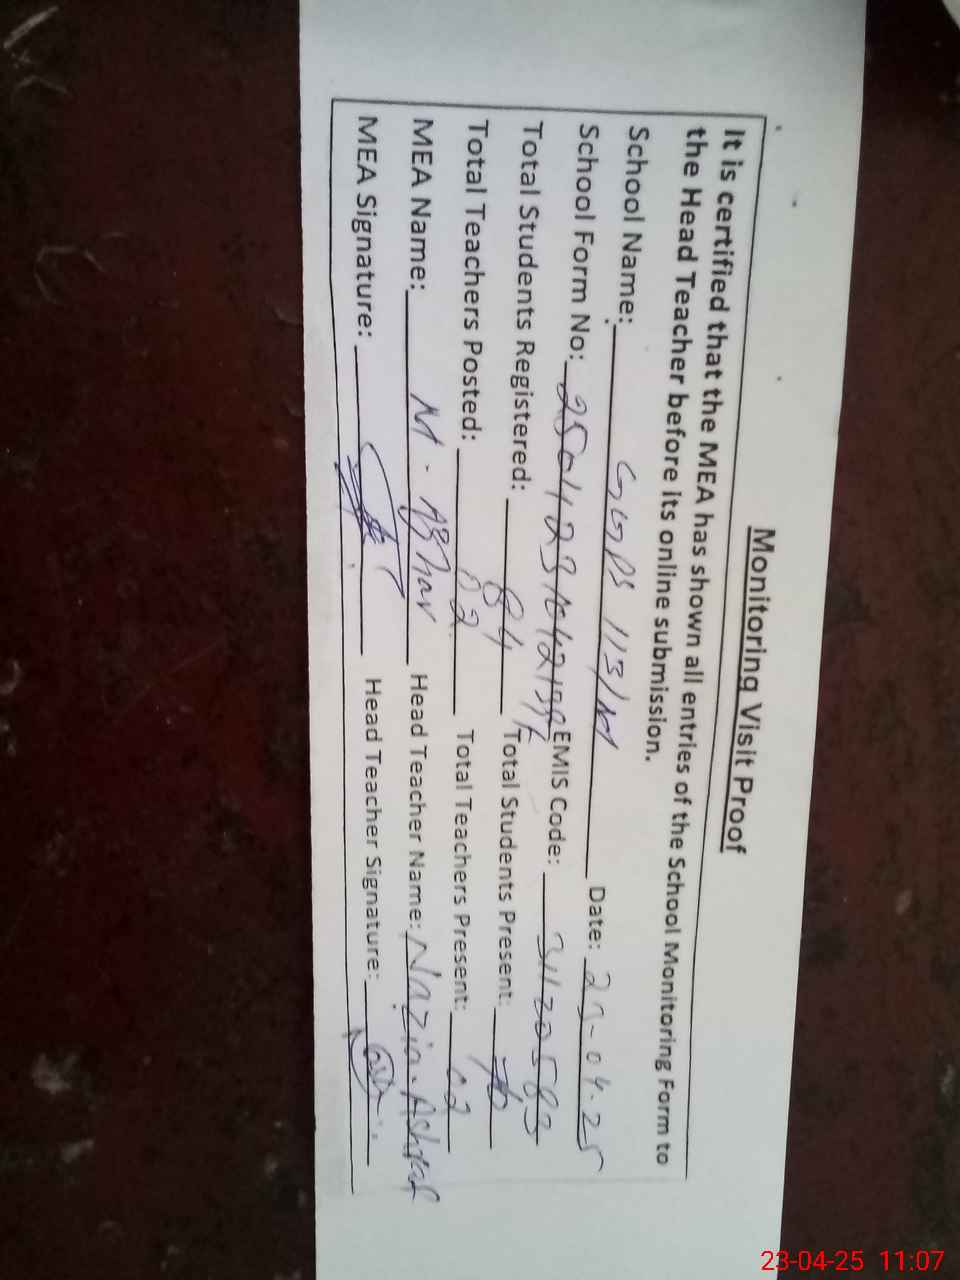 Monitoring Visit Proof
It is certified that the MEA has shown all entries of the School Monitoring Form to
the Head Teacher before its online submission.
School Name: GGPS 113/M Date: 23-04-25
School Form No: EMIS Code: 31120583
Total Students Registered: 84 Total Students Present: 70
Total Teachers Posted: 02 Total Teachers Present: 02
MEA Name: M. Azhar Head Teacher Name: Nazia Ashraf
MEA Signature: Head Teacher Signature:
23-04-25 11:07